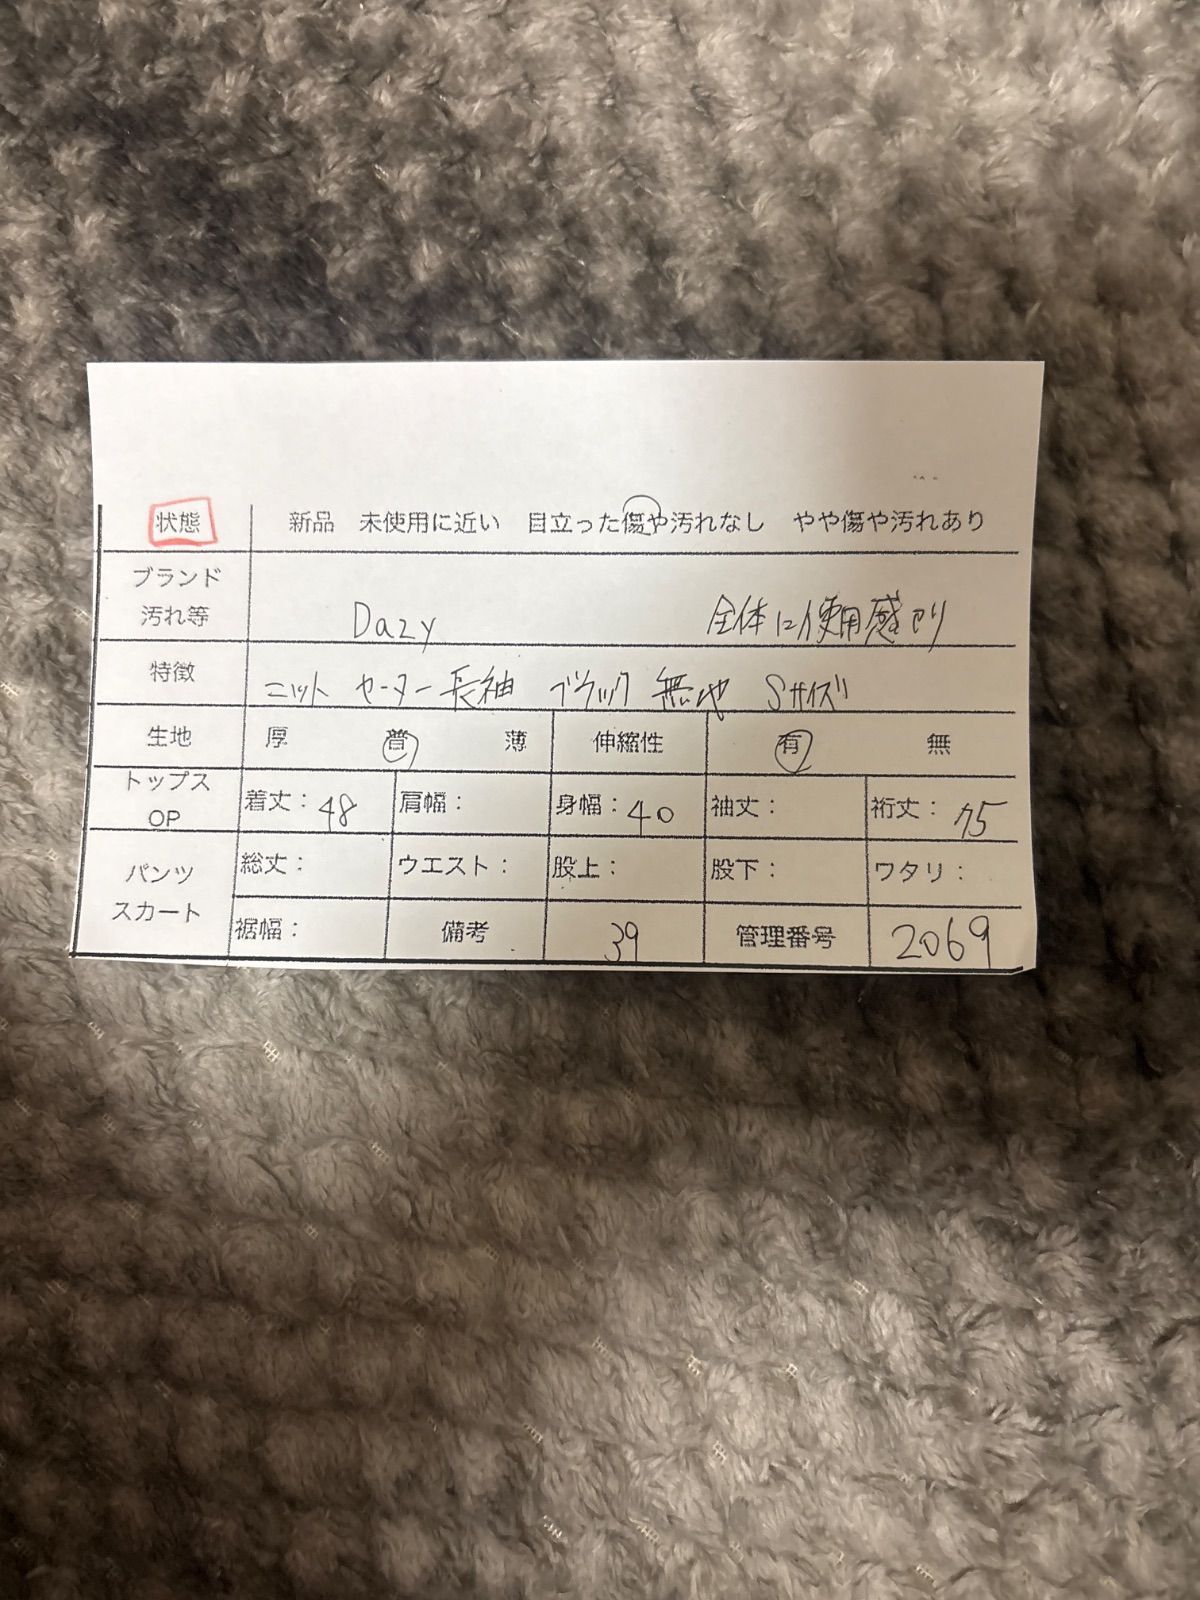 状態 新品 未使用に近い 目立った傷や汚れなし やや傷や汚れあり
ブランド
汚れ等 Dazy 全体に使用感あり
特徴 ニット セーター 長袖 ブラック 無地 Sサイズ
生地 厚 普 薄 伸縮性 有 無
トップス
OP 着丈：48 肩幅： 身幅：40 袖丈： 裄丈：75
パンツ
スカート 総丈： ウエスト： 股上： 股下： ワタリ：
裾幅： 備考 39 管理番号 2069